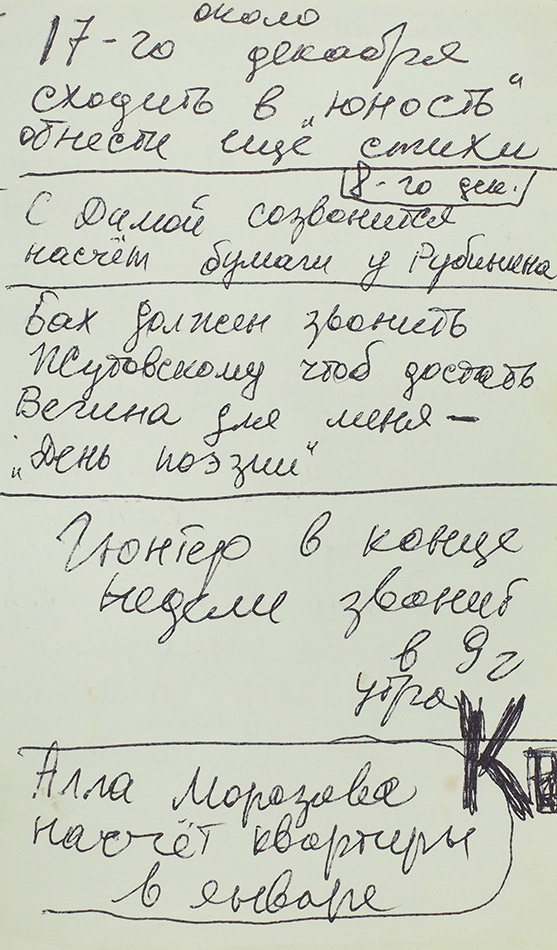 около
17-го декабря
сходить в „юность“
отнести ещё стихи
8-го дек.
С Димой созвонится
насчёт бумаги у Рубинена
Бах должен звонить
Жутовскому чтоб достать
Вегина для меня —
„День поэзии“
Гюнтер в конце
недели звонит
в 9 г
утра
Алла Морозова
насчёт квартиры
в январе